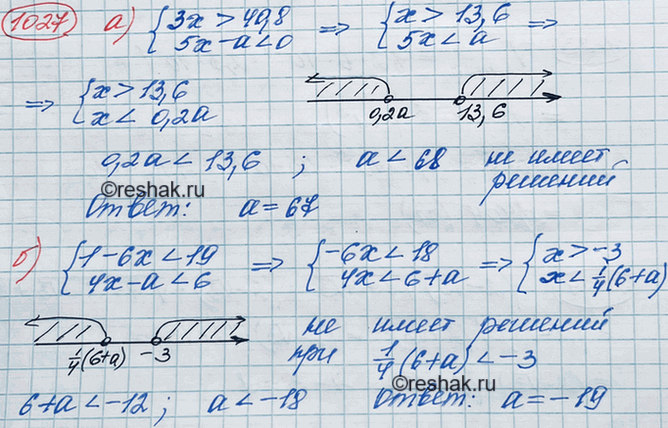 1027 а) {3x > 40,8 5x-a<0 => {x > 13,6 5x < a =>
=> {x > 13,6 x < 0,2a
0,2a 13,6
0,2a < 13,6 ; a < 68 не имеет решений
©reshak.ru
Ответ: a = 67
б) {1-6x<19 4x-a<6 => {-6x<18 4x<6+a => {x>-3 x<1/4(6+a)
1/4(6+a) -3
не имеет решений
при 1/4(6+a) < -3
©reshak.ru
6+a < -12 ; a < -18 Ответ: a = -19